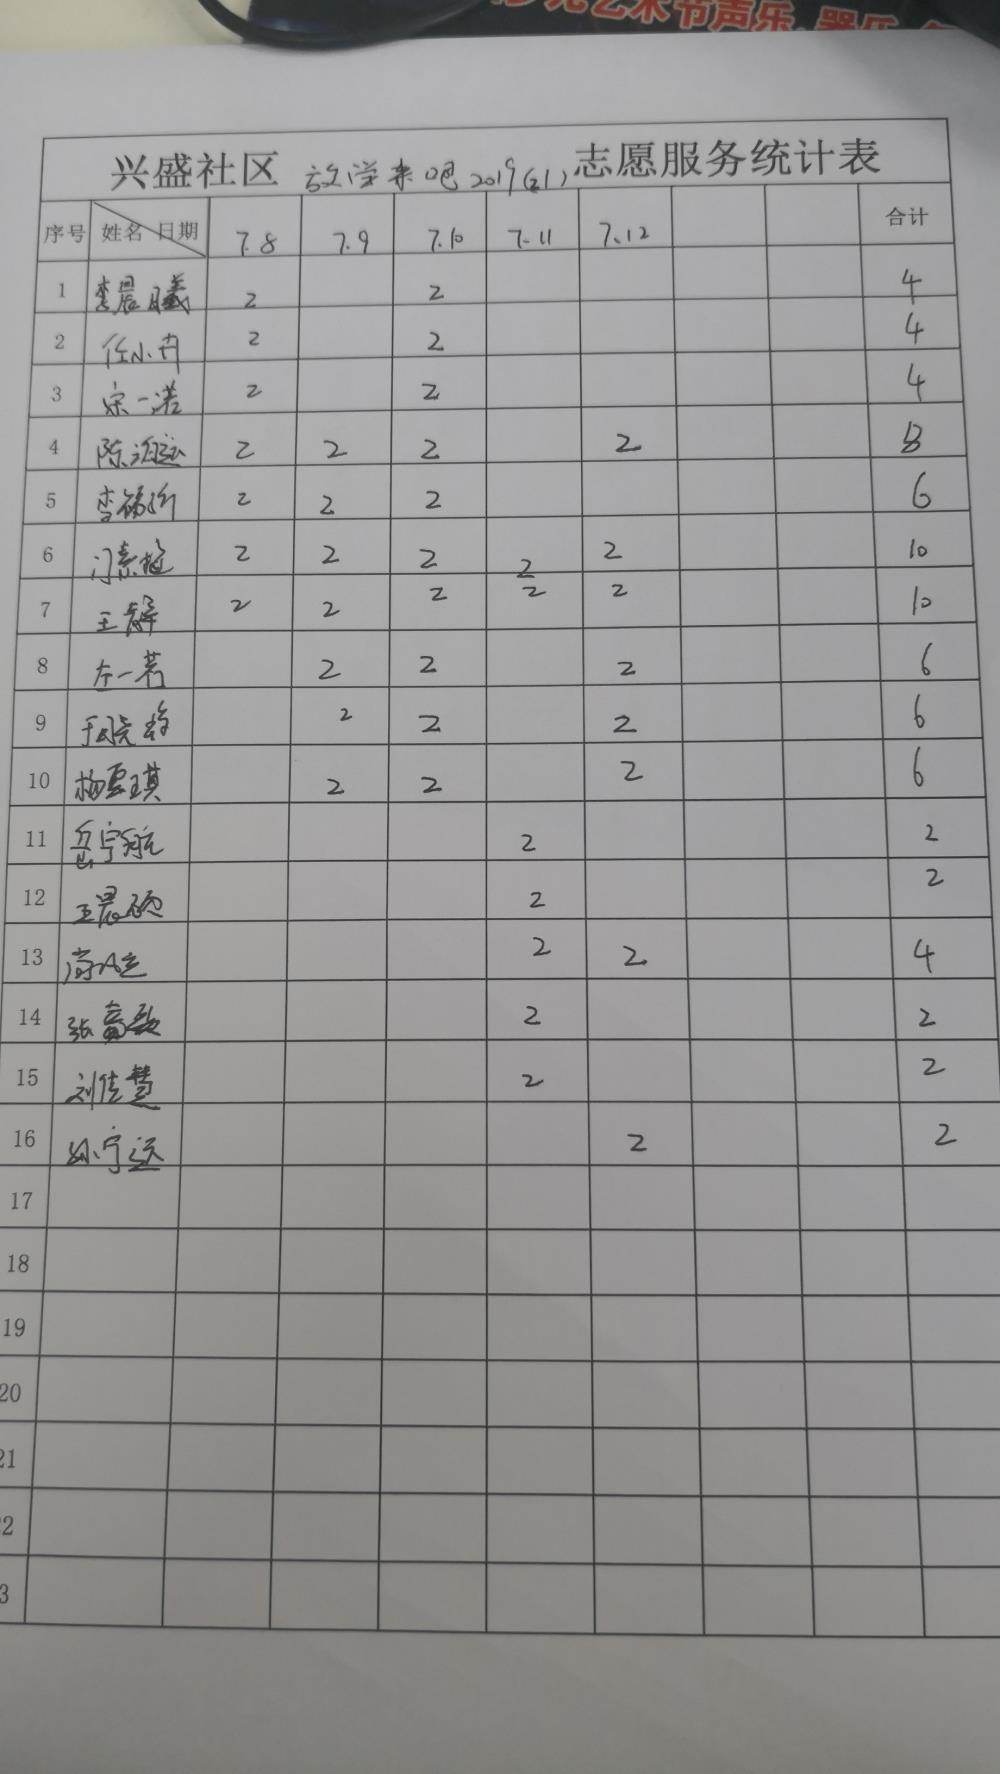 艺术节声乐、器乐
兴盛社区 放学来吧2019(21) 志愿服务统计表
序号 姓名 日期 7.8 7.9 7.10 7.11 7.12 合计
1 李晨曦 2 2 4
2 任小卉 2 2 4
3 宋一诺 2 2 4
4 陈 2 2 2 2 8
5 李 2 2 2 6
6 门 2 2 2 2 2 10
7 王 2 2 2 2 2 10
8 左一若 2 2 2 6
9 2 2 2 6
10 杨雯琪 2 2 2 6
11 岳宇航 2 2
12 王晨硕 2 2
13 2 2 4
14 张 2 2
15 刘佳慧 2 2
16 孙宁远 2 2
17
18
19
20
21
22
3